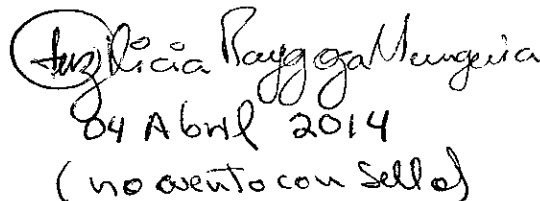 Luz Alicia Raygoza Munguia
04 Abril 2014
(no cuento con Sello)